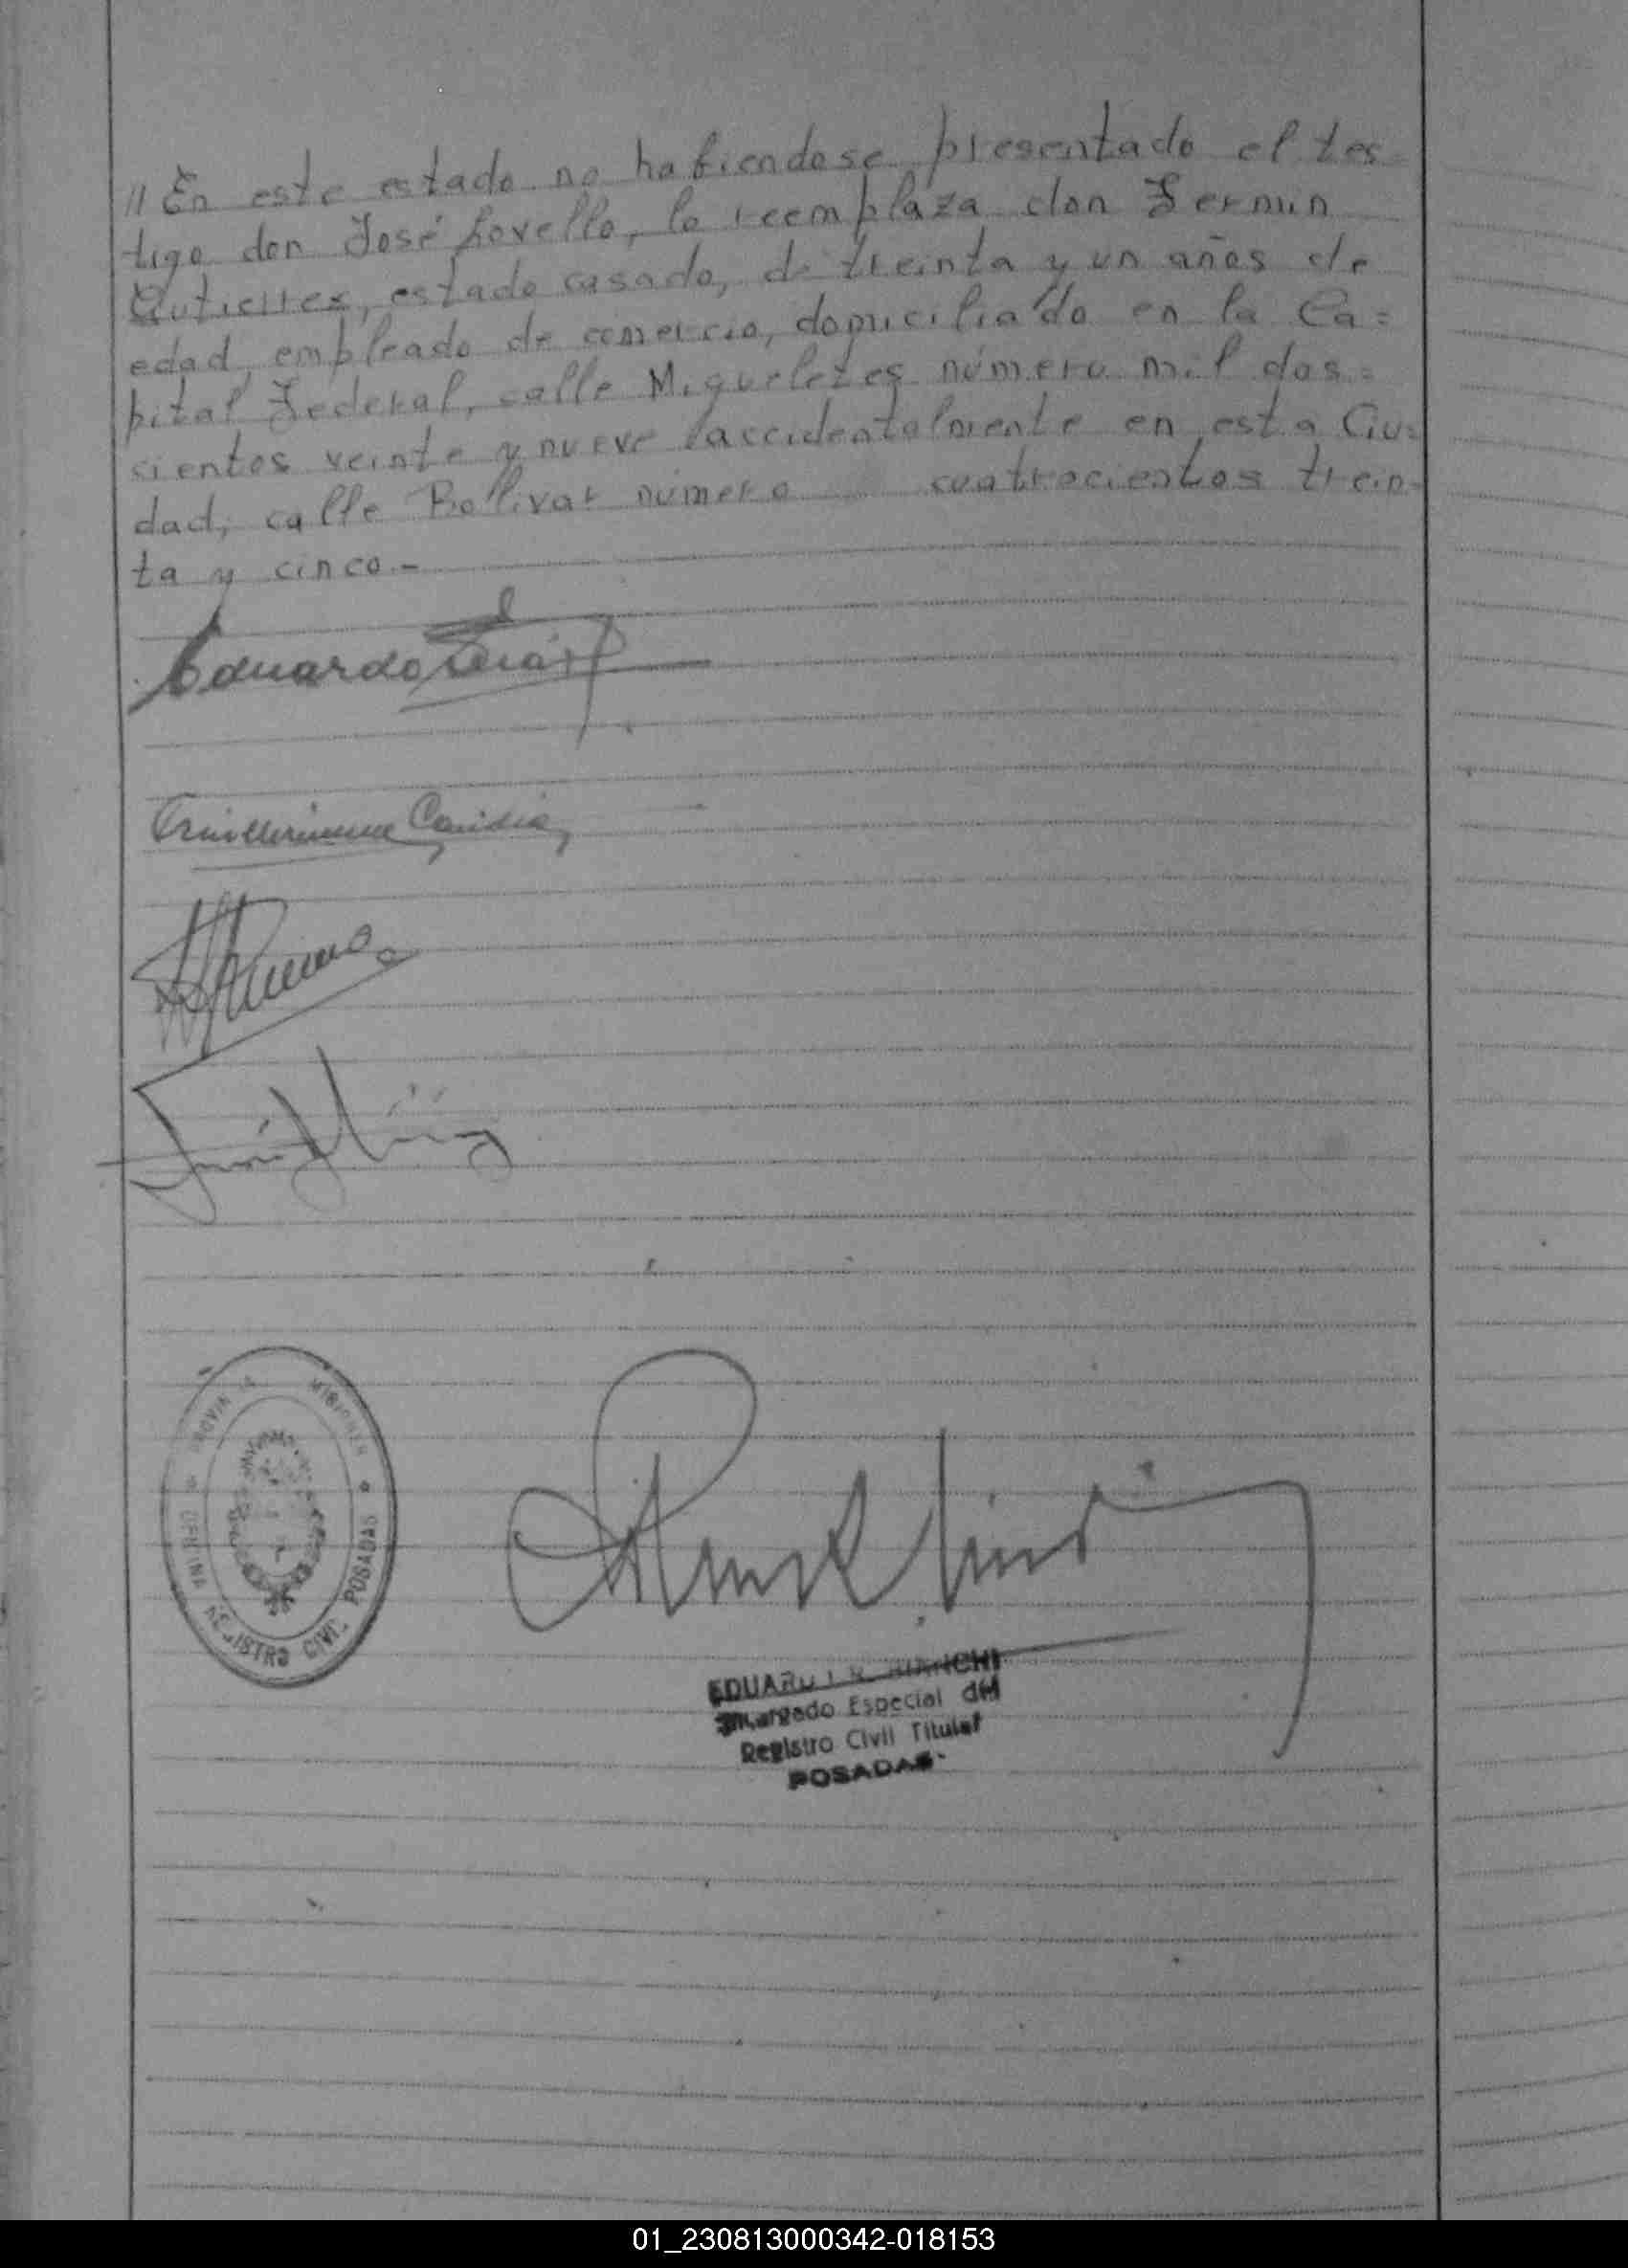 // En este estado no habiendose presentado el tes=
tigo don José Lovello, lo reemplaza don Fermin
Gutierres, estado casado, de treinta y un años de
edad, empleado de comercio, domiciliado en la Ca=
pital Federal, calle Migueletes número mil dos=
sientos veinte y nueve accidentalmente en esta Ciu=
dad, calle Bolivar número cuatrocientos trein-
ta y cinco.-
Eduardo
PROVINCIA MISIONES
OFICINA REGISTRO CIVIL POSADAS
EDUARDO R. BIANCHI
Encargado Especial del
Registro Civil Titular
POSADAS
01_230813000342-018153